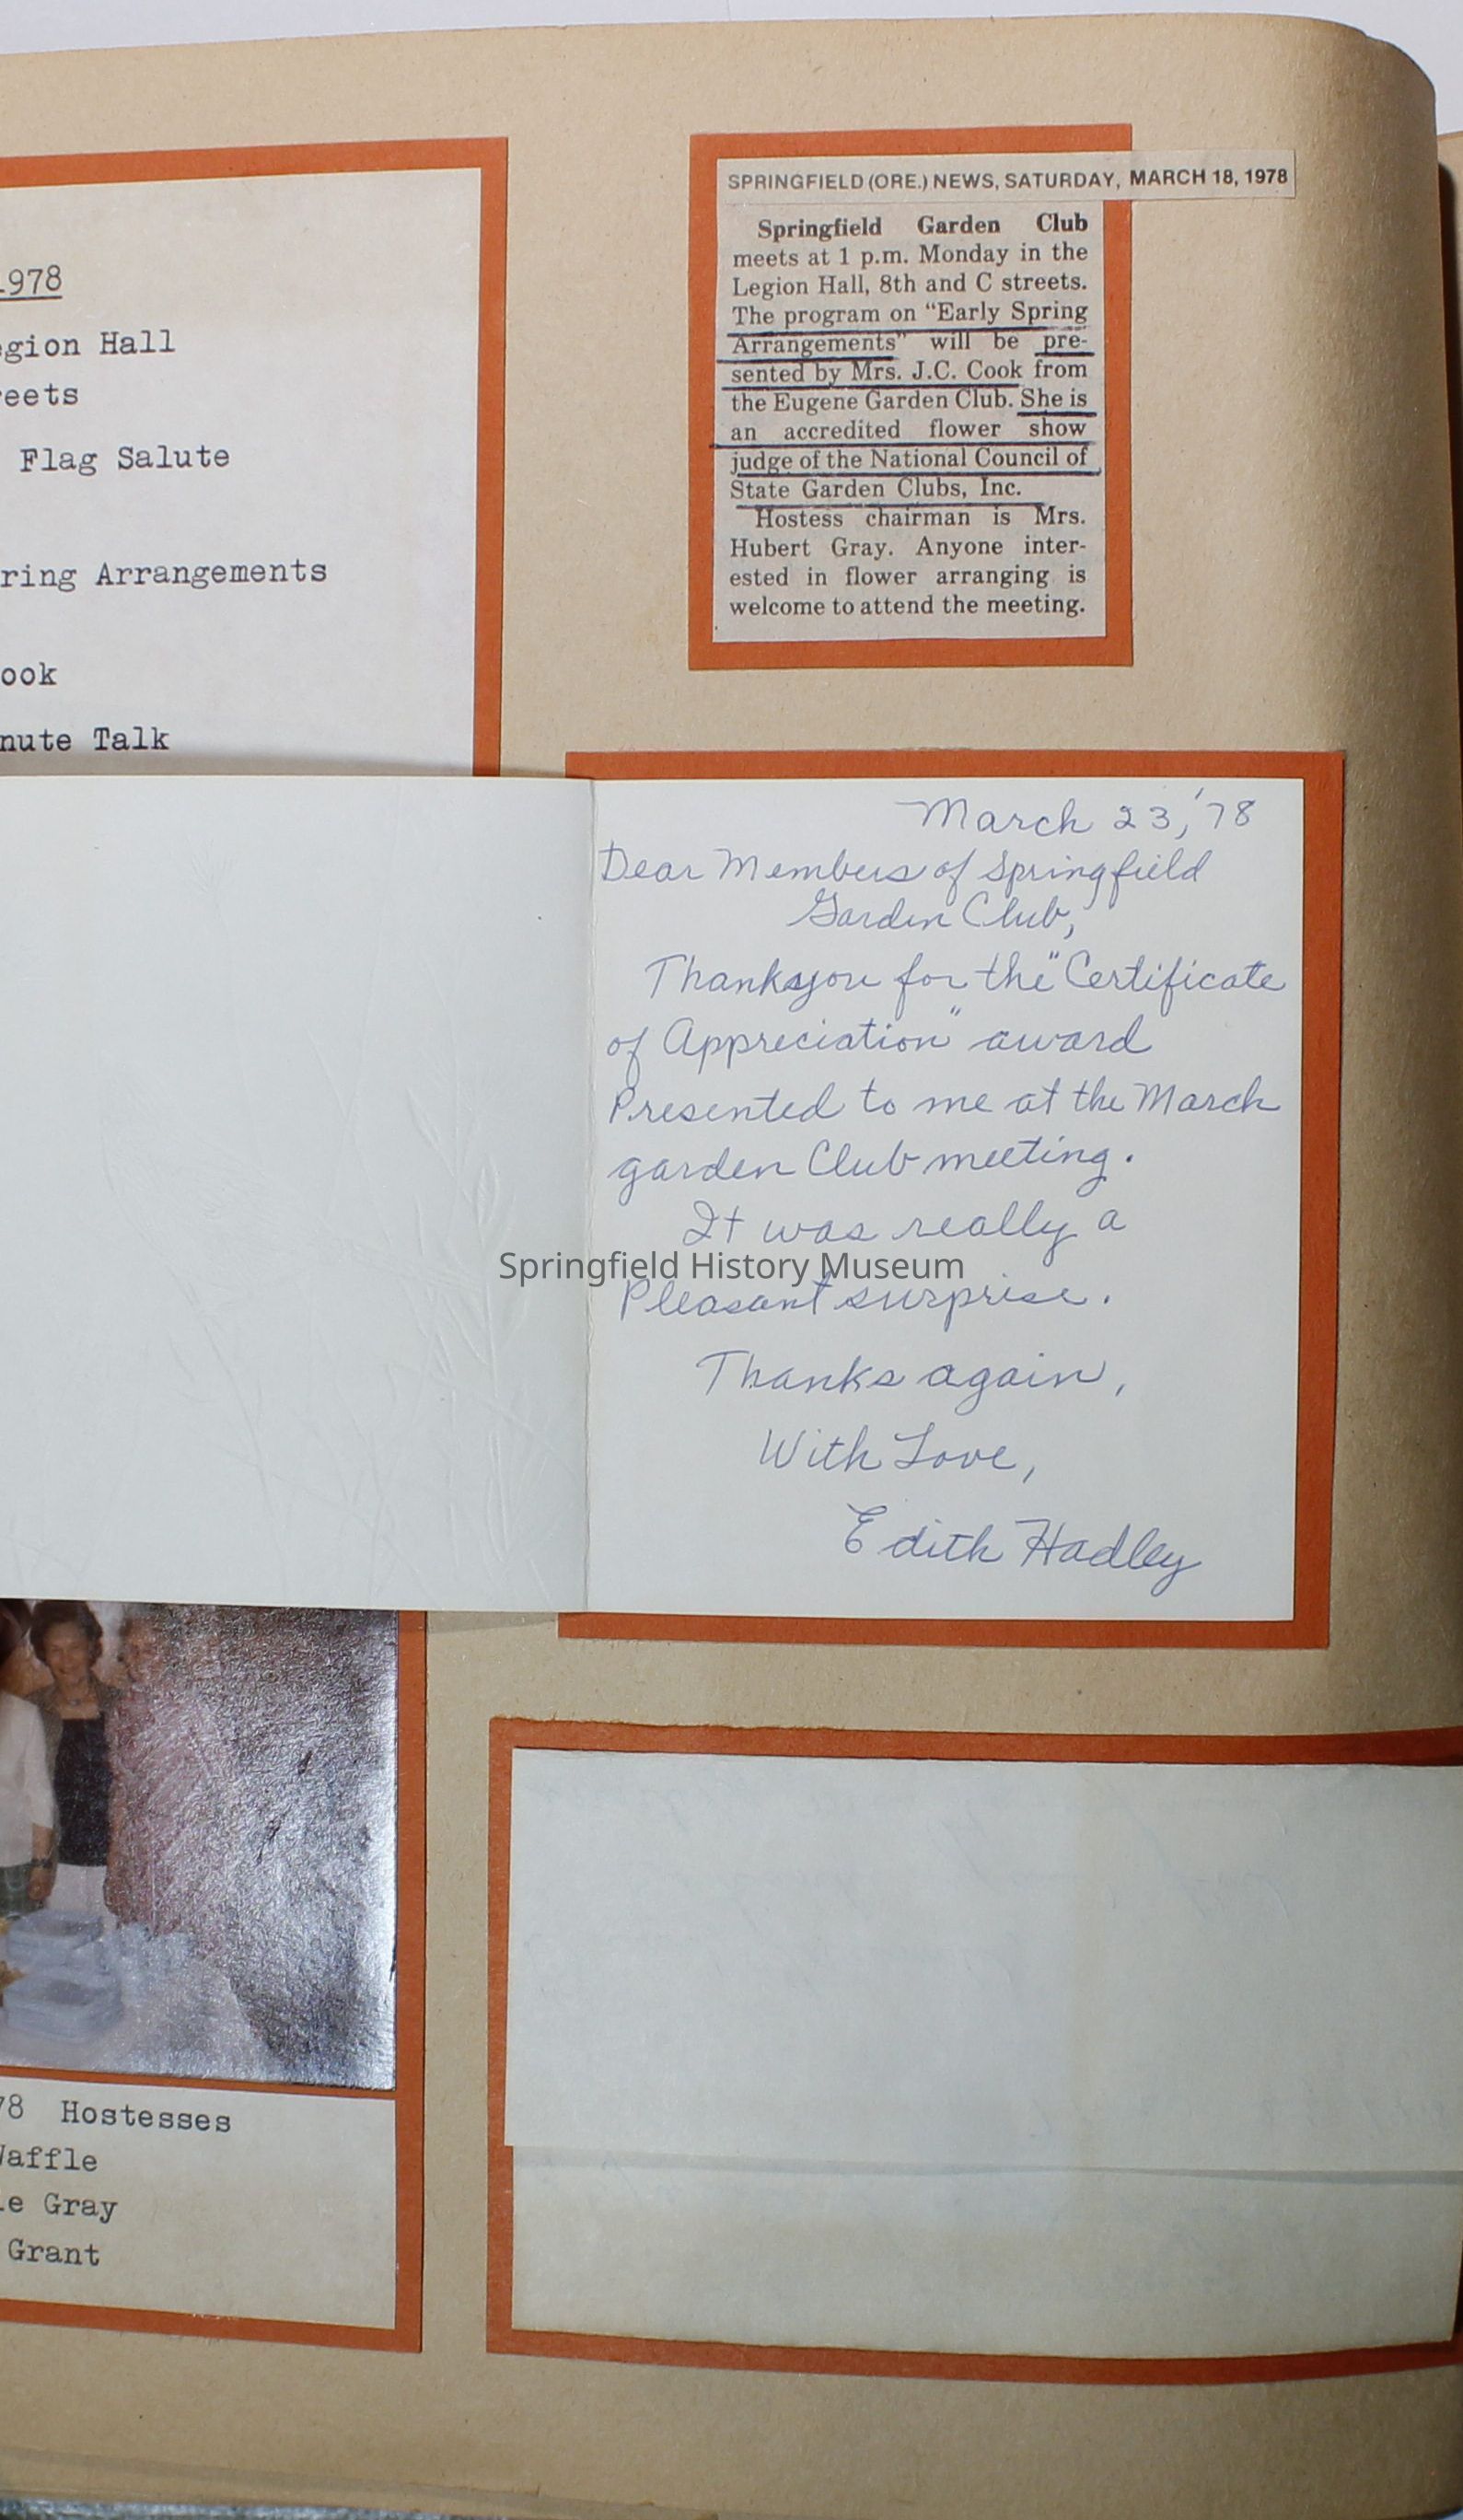 1978
egion Hall
reets
Flag Salute
ring Arrangements
ook
nute Talk
SPRINGFIELD (ORE.) NEWS, SATURDAY, MARCH 18, 1978
Springfield Garden Club
meets at 1 p.m. Monday in the
Legion Hall, 8th and C streets.
The program on “Early Spring
Arrangements” will be pre-
sented by Mrs. J.C. Cook from
the Eugene Garden Club. She is
an accredited flower show
judge of the National Council of
State Garden Clubs, Inc.
Hostess chairman is Mrs.
Hubert Gray. Anyone inter-
ested in flower arranging is
welcome to attend the meeting.
March 23, '78
Dear Members of Springfield
Garden Club,
Thankyou for the "Certificate
of Appreciation" award
Presented to me at the March
garden Club meeting.
It was really a
Pleasant surprise.
Thanks again,
With Love,
Edith Hadley
Springfield History Museum
78 Hostesses
Waffle
le Gray
Grant